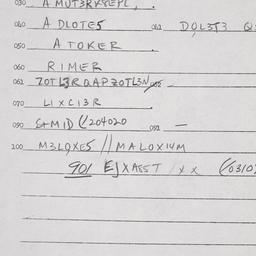 030 A MUT3RX8EPL,
040 A DLOTES 041 DOL3T3
050 A TOKER
060 RIMER
061 ZOTL3RQAPZOTL3N
070 LIXCI3R
090 S+MID (204020 091 —
100 M3LOXES // MALOXIUM
901 EJXAEST / x x (0310